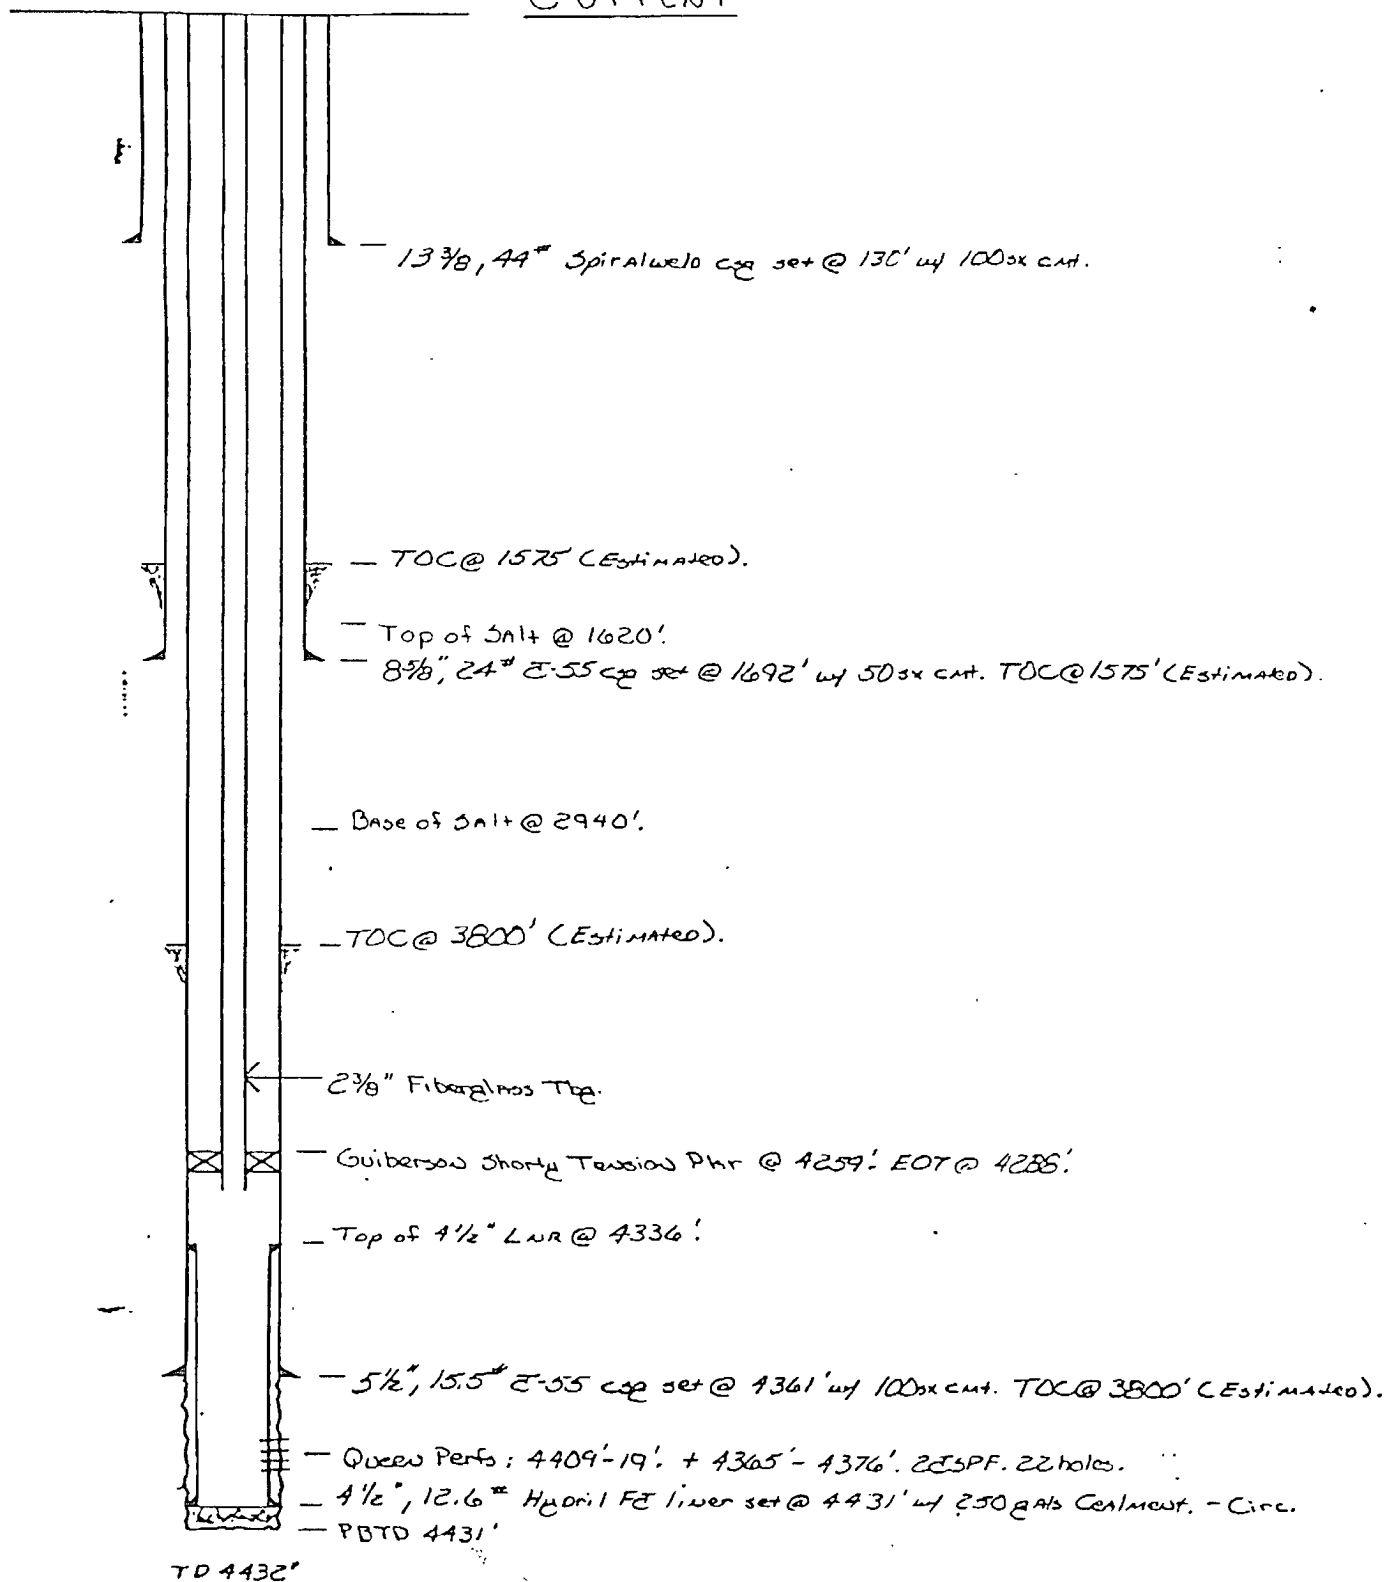 CURRENT
13 3/8, 44# Spiralweld csg set @ 130' w/ 100sx cmt.
TOC @ 1575' (Estimated).
Top of Salt @ 1620'.
8 5/8", 24# J-55 csg set @ 1692' w/ 50sx cmt. TOC @ 1575' (Estimated).
Base of Salt @ 2940'.
TOC @ 3800' (Estimated).
2 3/8" Fiberglass Tbg.
Guiberson Shorty Tension Pkr @ 4259'. EOT @ 4286'.
Top of 4 1/2" LNR @ 4336'.
5 1/2", 15.5# J-55 csg set @ 4361' w/ 100sx cmt. TOC @ 3800' (Estimated).
Queen Perfs: 4409'-19'. + 4365'-4376'. 2JSPF. 22 holes.
4 1/2", 12.6# Hydril FJ liner set @ 4431' w/ 250 gals Cealment. - Circ.
PBTD 4431'
TD 4432'